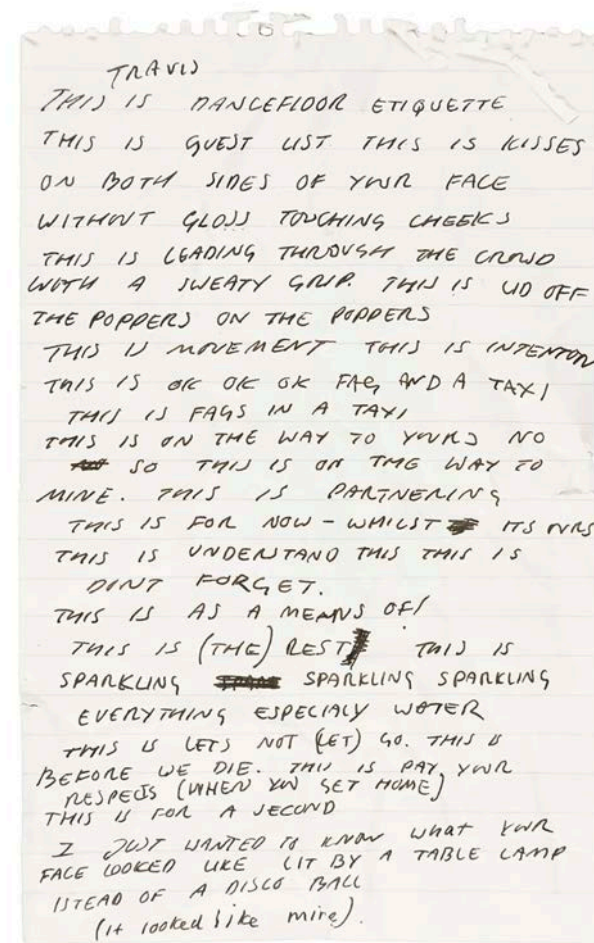 TRAVIS
THIS IS DANCEFLOOR ETIQUETTE
THIS IS GUEST LIST THIS IS KISSES
ON BOTH SIDES OF YOUR FACE
WITHOUT GLOSS TOUCHING CHEEKS
THIS IS LEADING THROUGH THE CROWD
WITH A SWEATY GRIP. THIS IS LID OFF
THE POPPERS ON THE POPPERS
THIS IS MOVEMENT THIS IS INTENTION
THIS IS OK OK OK FAG AND A TAXI
THIS IS FAGS IN A TAXI
THIS IS ON THE WAY TO YOURS NO
SO THIS IS ON THE WAY TO
MINE. THIS IS PARTNERING
THIS IS FOR NOW - WHILST ITS OURS
THIS IS UNDERSTAND THIS THIS IS
DONT FORGET.
THIS IS AS A MEANS OF/
THIS IS (THE) REST THIS IS
SPARKLING SPARKLING SPARKLING
EVERYTHING ESPECIALY WATER
THIS IS LETS NOT (LET) GO. THIS IS
BEFORE WE DIE. THIS IS PAY YOUR
RESPECTS (WHEN YOU GET HOME)
THIS IS FOR A SECOND
I JUST WANTED TO KNOW WHAT YOUR
FACE LOOKED LIKE LIT BY A TABLE LAMP
ISTEAD OF A DISCO BALL
(it looked like mine).